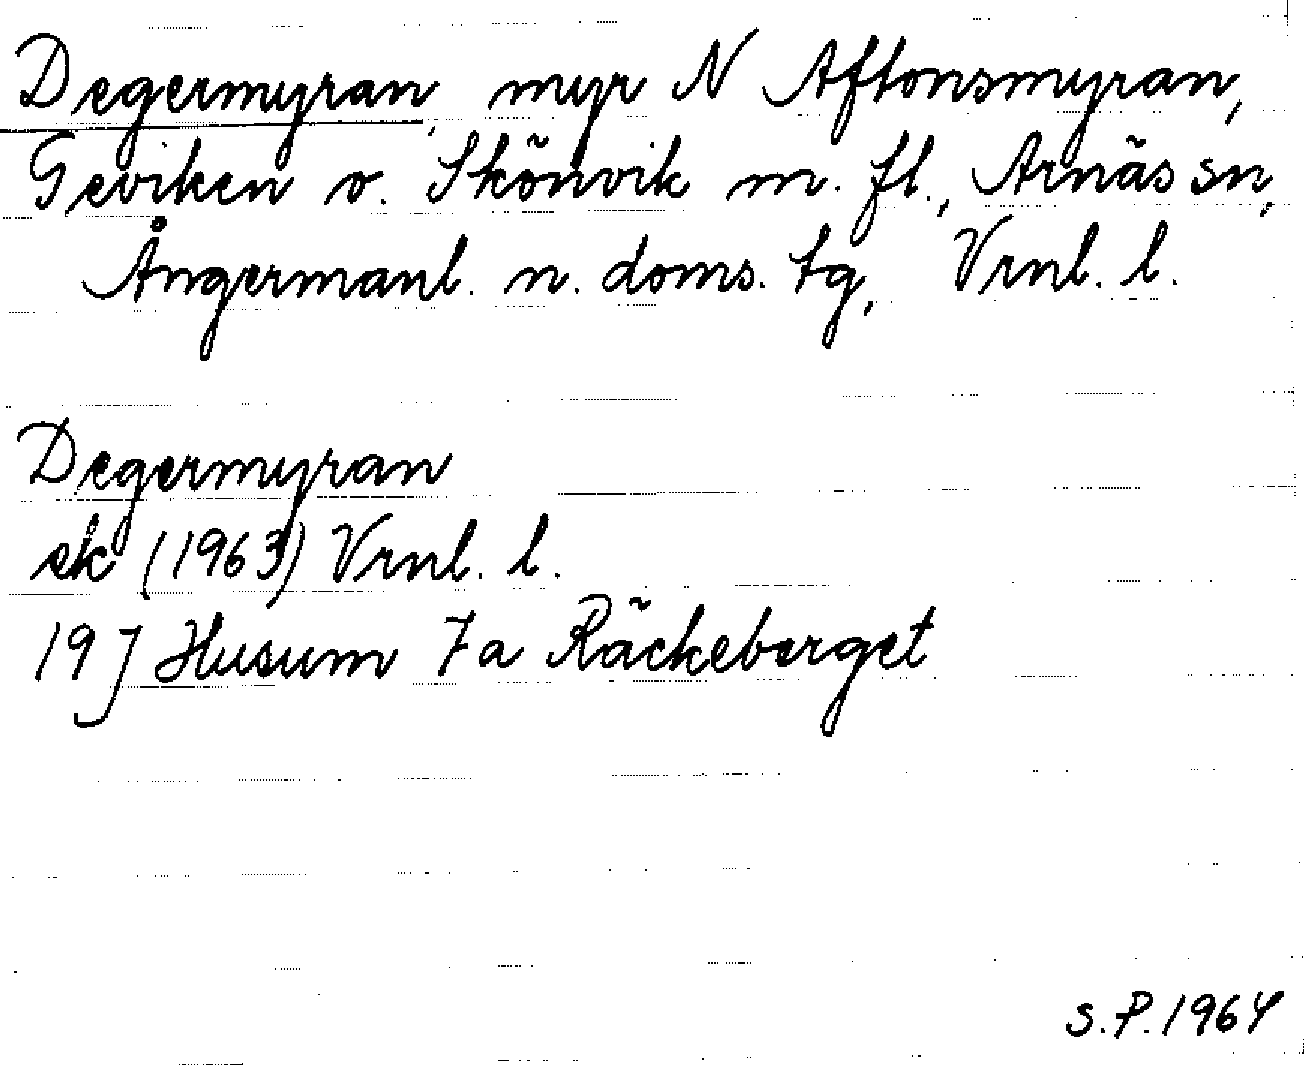 Degermyran, myr N Aftonsmyran,
Geviken o. Skönvik m. fl., Arnäs sn,
Ångermanl. n. doms. tg, Vrnl. l.
Degermyran
ek (1963) Vrnl. l.
19 J Husum 7a Räckeberget
S.P. 1964